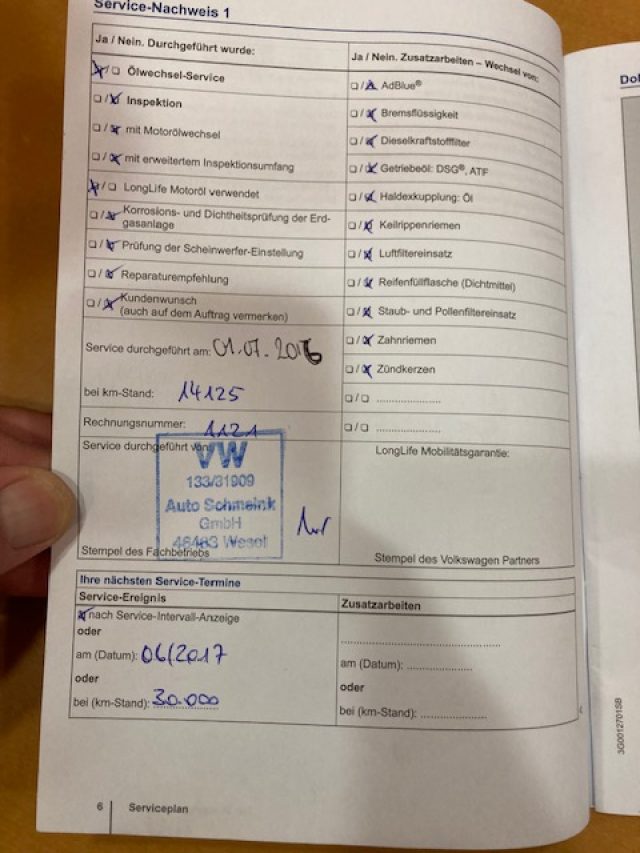 Service-Nachweis 1
Ja / Nein. Durchgeführt wurde:
☒/☐ Ölwechsel-Service
☐/☒ Inspektion
☐/☒ mit Motorölwechsel
☐/☒ mit erweitertem Inspektionsumfang
☒/☐ LongLife Motoröl verwendet
☐/☒ Korrosions- und Dichtheitsprüfung der Erd-
gasanlage
☐/☒ Prüfung der Scheinwerfer-Einstellung
☐/☒ Reparaturempfehlung
☐/☒ Kundenwunsch
(auch auf dem Auftrag vermerken)
Service durchgeführt am: 01.07.2016
bei km-Stand: 14125
Rechnungsnummer: 1121
Service durchgeführt von:
VW
133/31909
Auto Schmeink
GmbH
46483 Wesel
Stempel des Fachbetriebs
Ja / Nein. Zusatzarbeiten – Wechsel von:
☐/☒ AdBlue®
☐/☒ Bremsflüssigkeit
☐/☒ Dieselkraftstofffilter
☐/☒ Getriebeöl: DSG®, ATF
☐/☒ Haldexkupplung: Öl
☐/☒ Keilrippenriemen
☐/☒ Luftfiltereinsatz
☐/☒ Reifenfüllflasche (Dichtmittel)
☐/☒ Staub- und Pollenfiltereinsatz
☐/☒ Zahnriemen
☐/☒ Zündkerzen
☐/☐ .....................
☐/☐ .....................
LongLife Mobilitätsgarantie:
Stempel des Volkswagen Partners
Ihre nächsten Service-Termine
Service-Ereignis
☒ nach Service-Intervall-Anzeige
oder
am (Datum): 06/2017
oder
bei (km-Stand): 30.000
Zusatzarbeiten
..................................................
am (Datum): .....................
oder
bei (km-Stand): .....................
6
Serviceplan
3G0012701SB